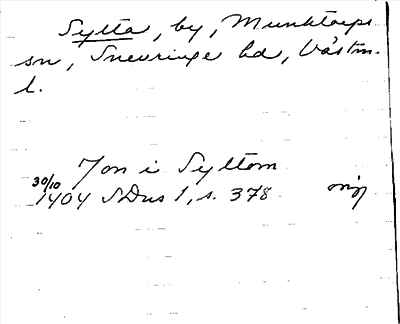 Sylta, by, Munktorps
sn, Snevringe hd, Västm.
l.
Jon i Syltom
30/10
1404 SDns 1, s. 378 or